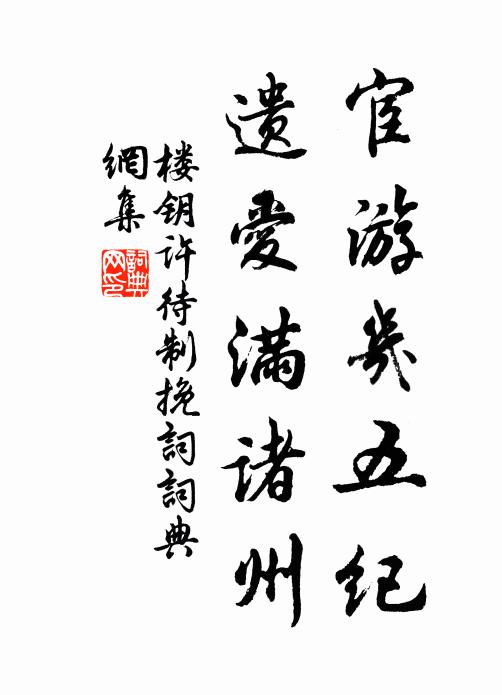 宦游几五纪
遗爱满诸州
楼钥许待制挽詞詞典
網集
詞典网印